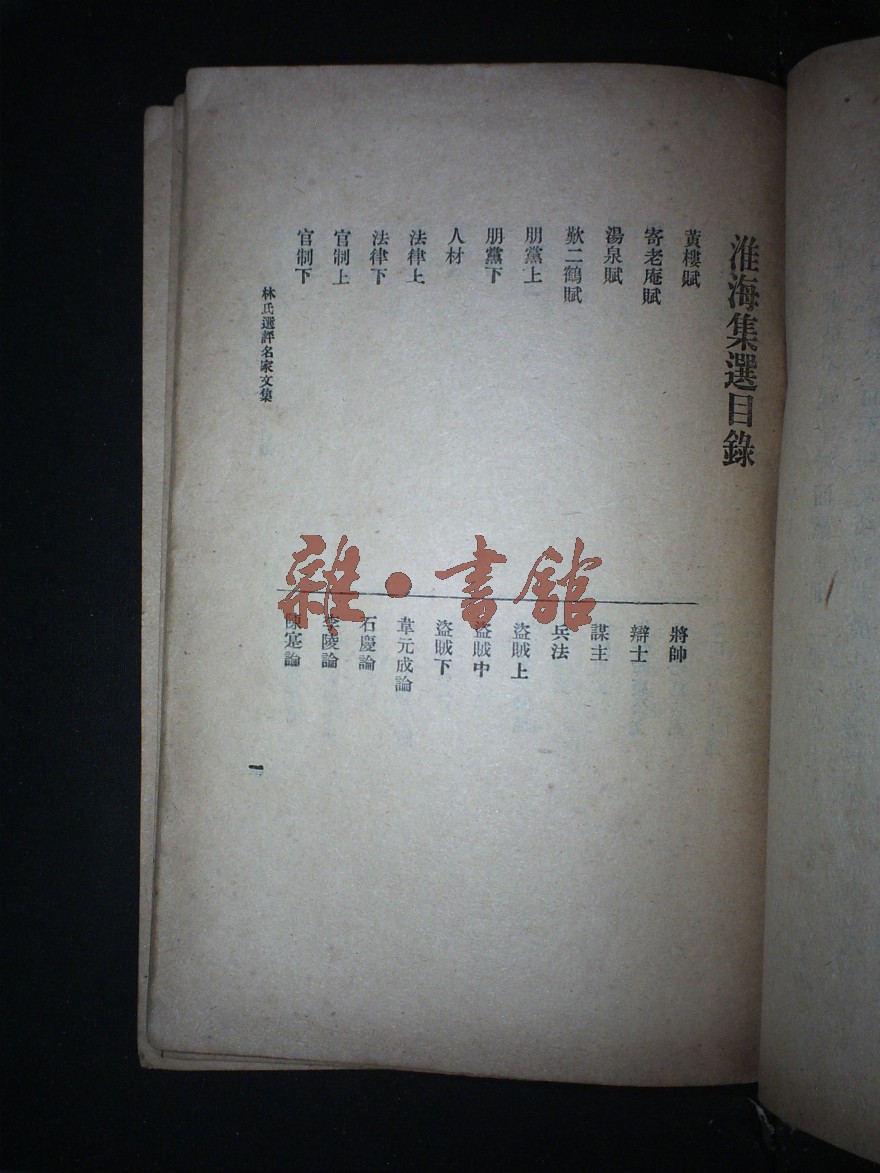 淮海集選目錄
黃樓賦
寄老庵賦
湯泉賦
歎二鶴賦
朋黨上
朋黨下
人材
法律上
法律下
官制上
官制下
將帥
辯士
謀主
兵法
盜賊上
盜賊中
盜賊下
韋元成論
石慶論
李陵論
陳寔論
林氏選評名家文集
一
雜·書館